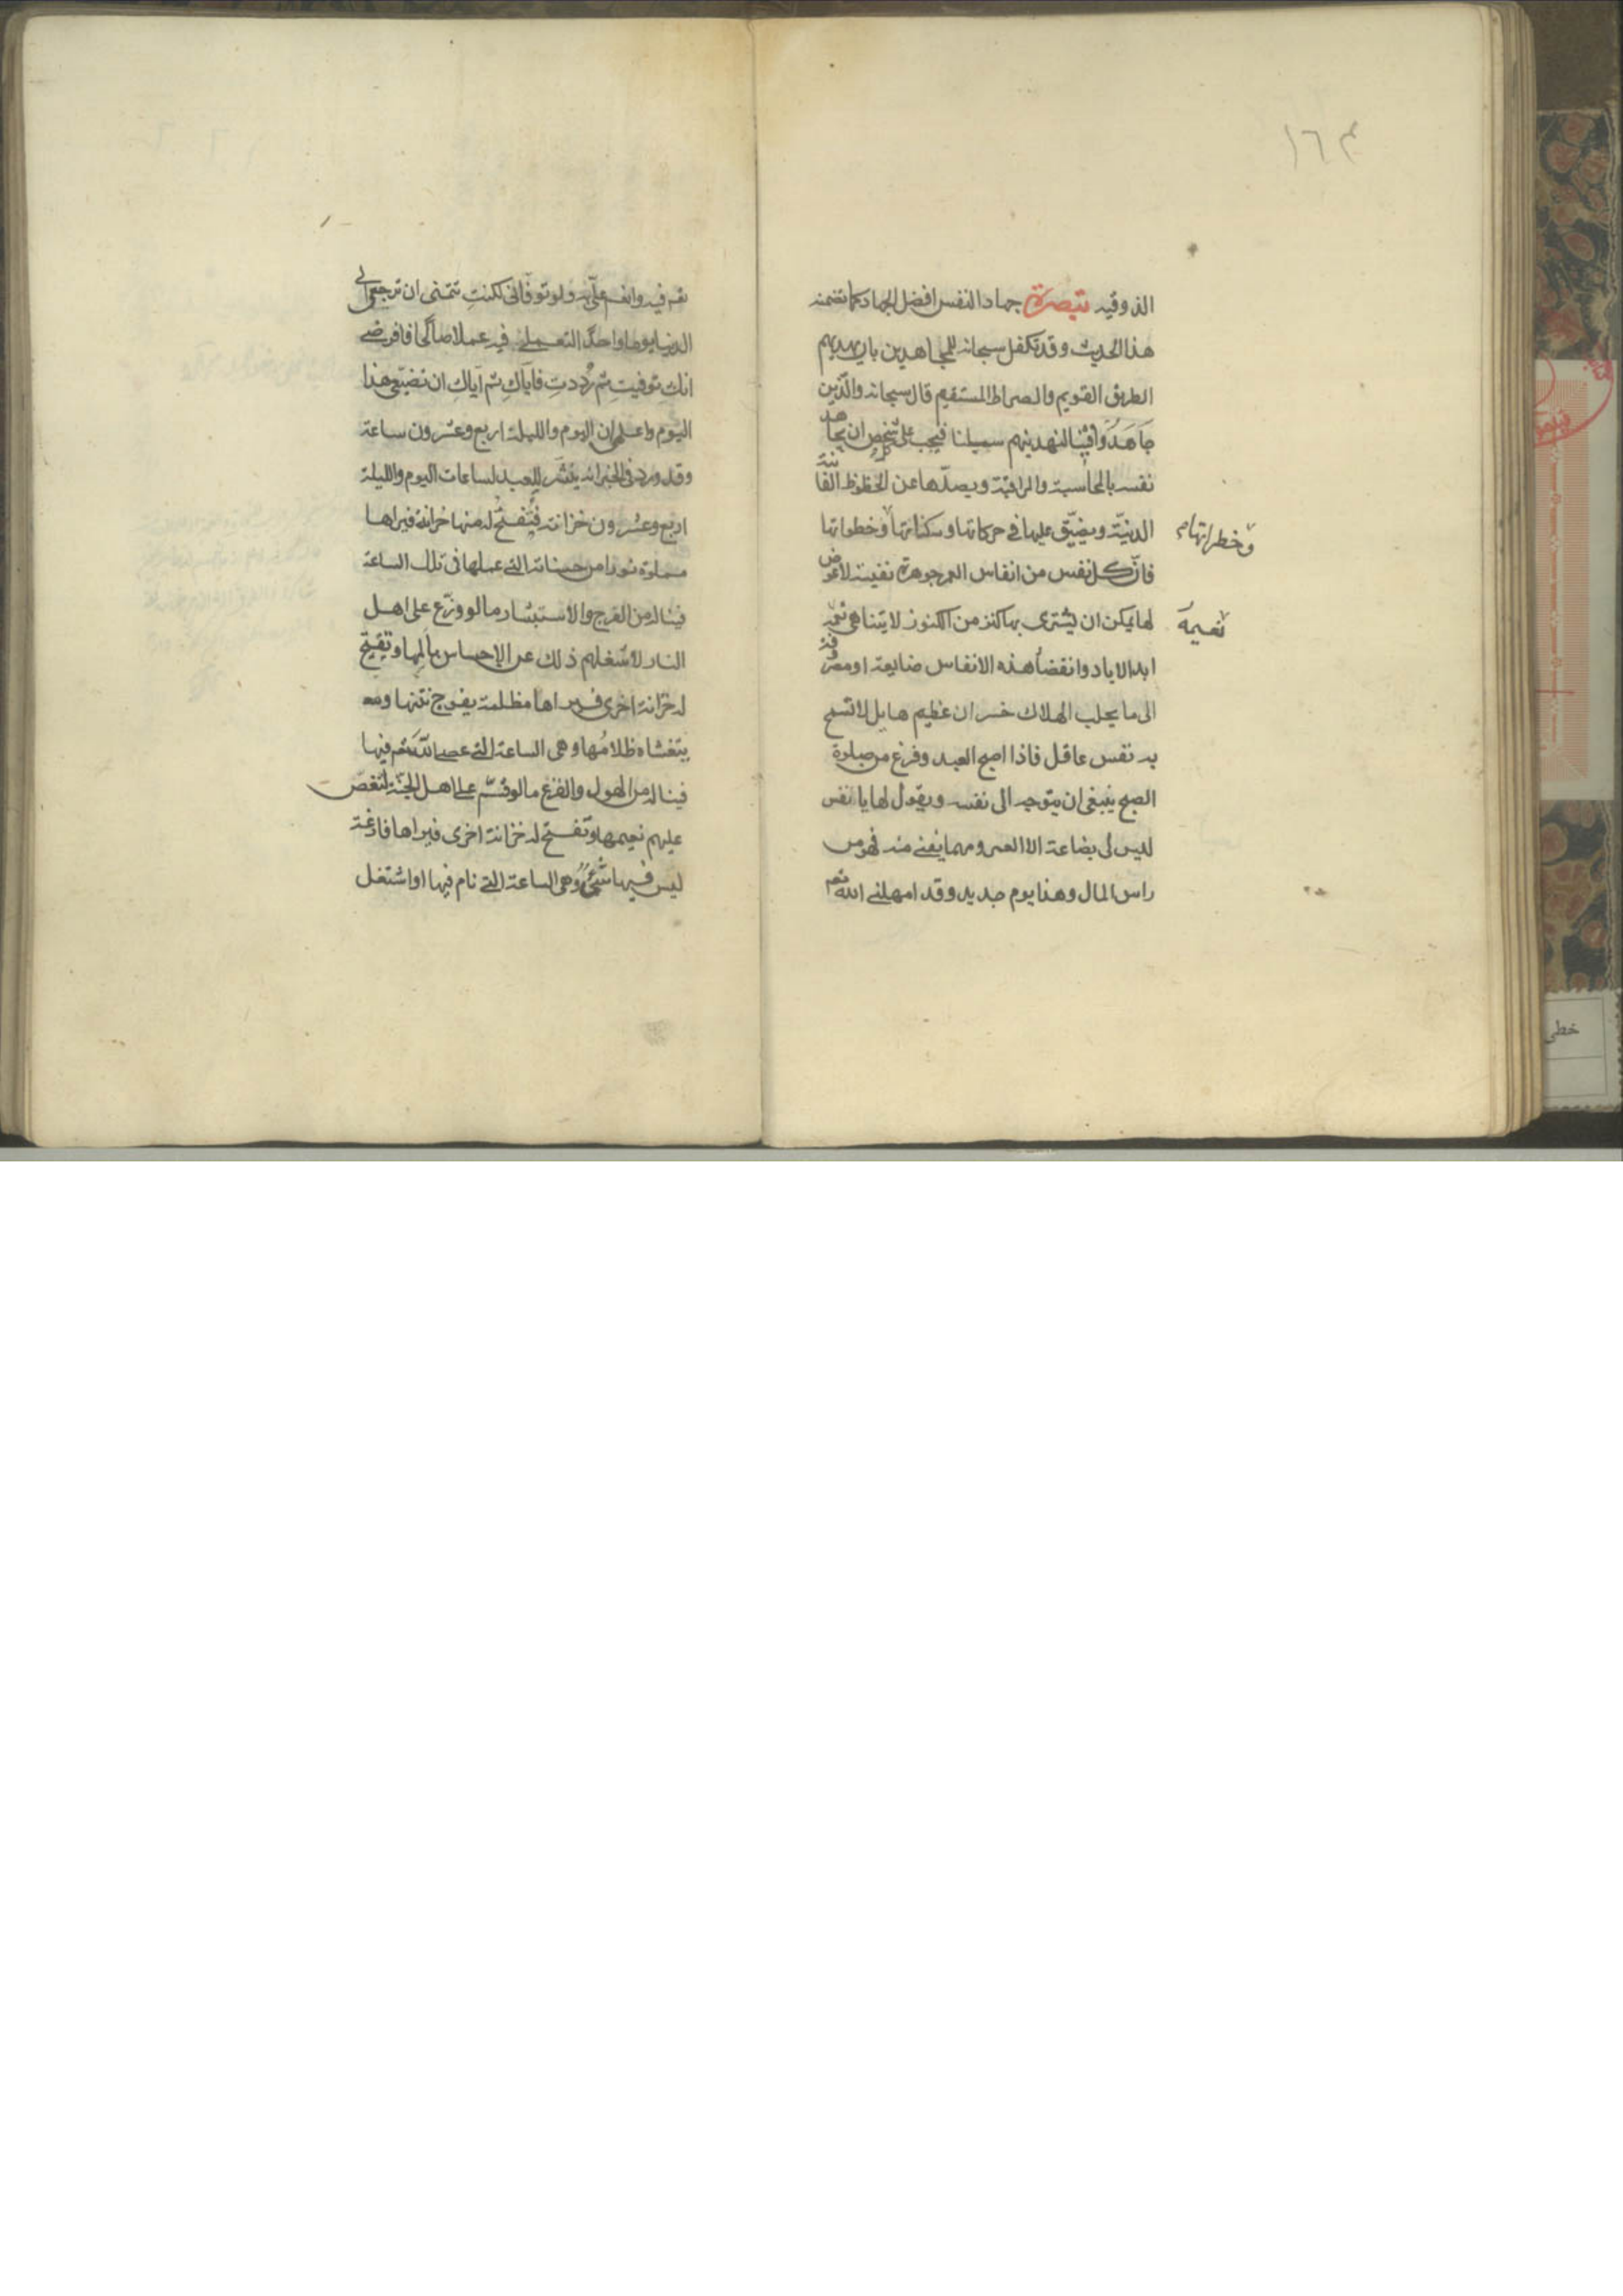 ١٦٣
الذوقية تبصرة جهاد النفس افضل الجهاد كما تضمنه
هذا الحديث وقد تكفل سبحانه للمجاهدين بان يهديهم
الطريق القويم والصراط المستقيم قال سبحانه والّذين
جَاهَدُوا فِينَا لنهدينهم سبيلنا فيجب على كل شخص ان يجاهد
نفسه بالمحاسبة والمراقبة ويصدّها عن الحظوظ الفانية
الدنيّة ويضيّق عليها في حركاتها وسكناتها وخطواتها
وخطراتها
فانّ كل نفس من انفاس العمر جوهرة نفيسة لا عوض
لها يمكن ان يشترى بها كنز من الكنوز لا يتناهى نعمه
نعيمه
ابد الاباد وانقضاء هذه الانفاس ضايعة او مصروفة
الى ما يجلب الهلاك خسران عظيم هايل لا تسمح
به نفس عاقل فاذا اصبح العبد وفرغ من صلوة
الصبح ينبغى ان يتوجه الى نفسه ويقول لها يا نفس
ليس لى بضاعة الا العمر ومهما يفنى منه فهو من
راس المال وهذا يوم جديد وقد امهلنى الله تعم
فيه وانعم علىّ به ولو توفّانى لكنتِ تتمنى ان ترجعى الى
الدنيا يوما واحدًا لتعملى فيه عملا صالحًا فافرضى
انك توفيتِ ثم رُددتِ فاياكِ ثم اياكِ ان تضيّعى هذا
اليوم واعلمى ان اليوم والليلة اربع وعشرون ساعة
وقد ورد فى الخبر انه ينشر للعبد لساعات اليوم والليلة
اربع وعشرون خزانة فتُفتحُ له منها خزانة فيراها
مملوة نورا من حسناته التى عملها فى تلك الساعة
فيناله من الفرح والاستبشار ما لو وزّع على اهل
النار لاشغلهم ذلك عن الاحساس بألمها وتفتح
له خزانة اخرى فيراها مظلمة يفوح نتنها و
يتغشاه ظلامُها وهى الساعة التى عصى الله تعم فيها
فيناله من الهول والفزع ما لو قسّم على اهل الجنّة لنغّص
عليهم نعيمها وتفتح له خزانة اخرى فيراها فارغة
ليس فيها شىءٌ وهى الساعة التى نام فيها او اشتغل
خطى